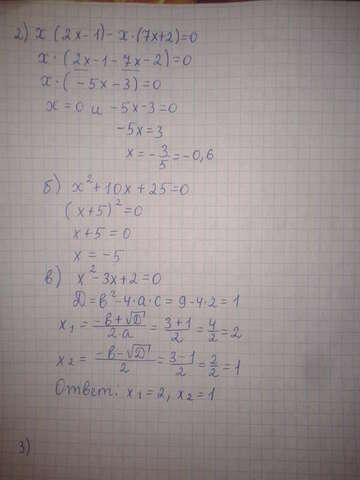 2) x (2x-1) - x·(7x+2)=0
x·(2x-1-7x-2)=0
x·(-5x-3)=0
x=0 и -5x-3=0
-5x=3
x=-3/5=-0,6
б) x²+10x+25=0
(x+5)²=0
x+5=0
x=-5
в) x²-3x+2=0
D=b²-4·a·c=9-4·2=1
x₁ = (-b+√D)/(2·a) = (3+1)/2 = 4/2 = 2
x₂ = (-b-√D)/2 = (3-1)/2 = 2/2 = 1
Ответ: x₁=2, x₂=1
3)